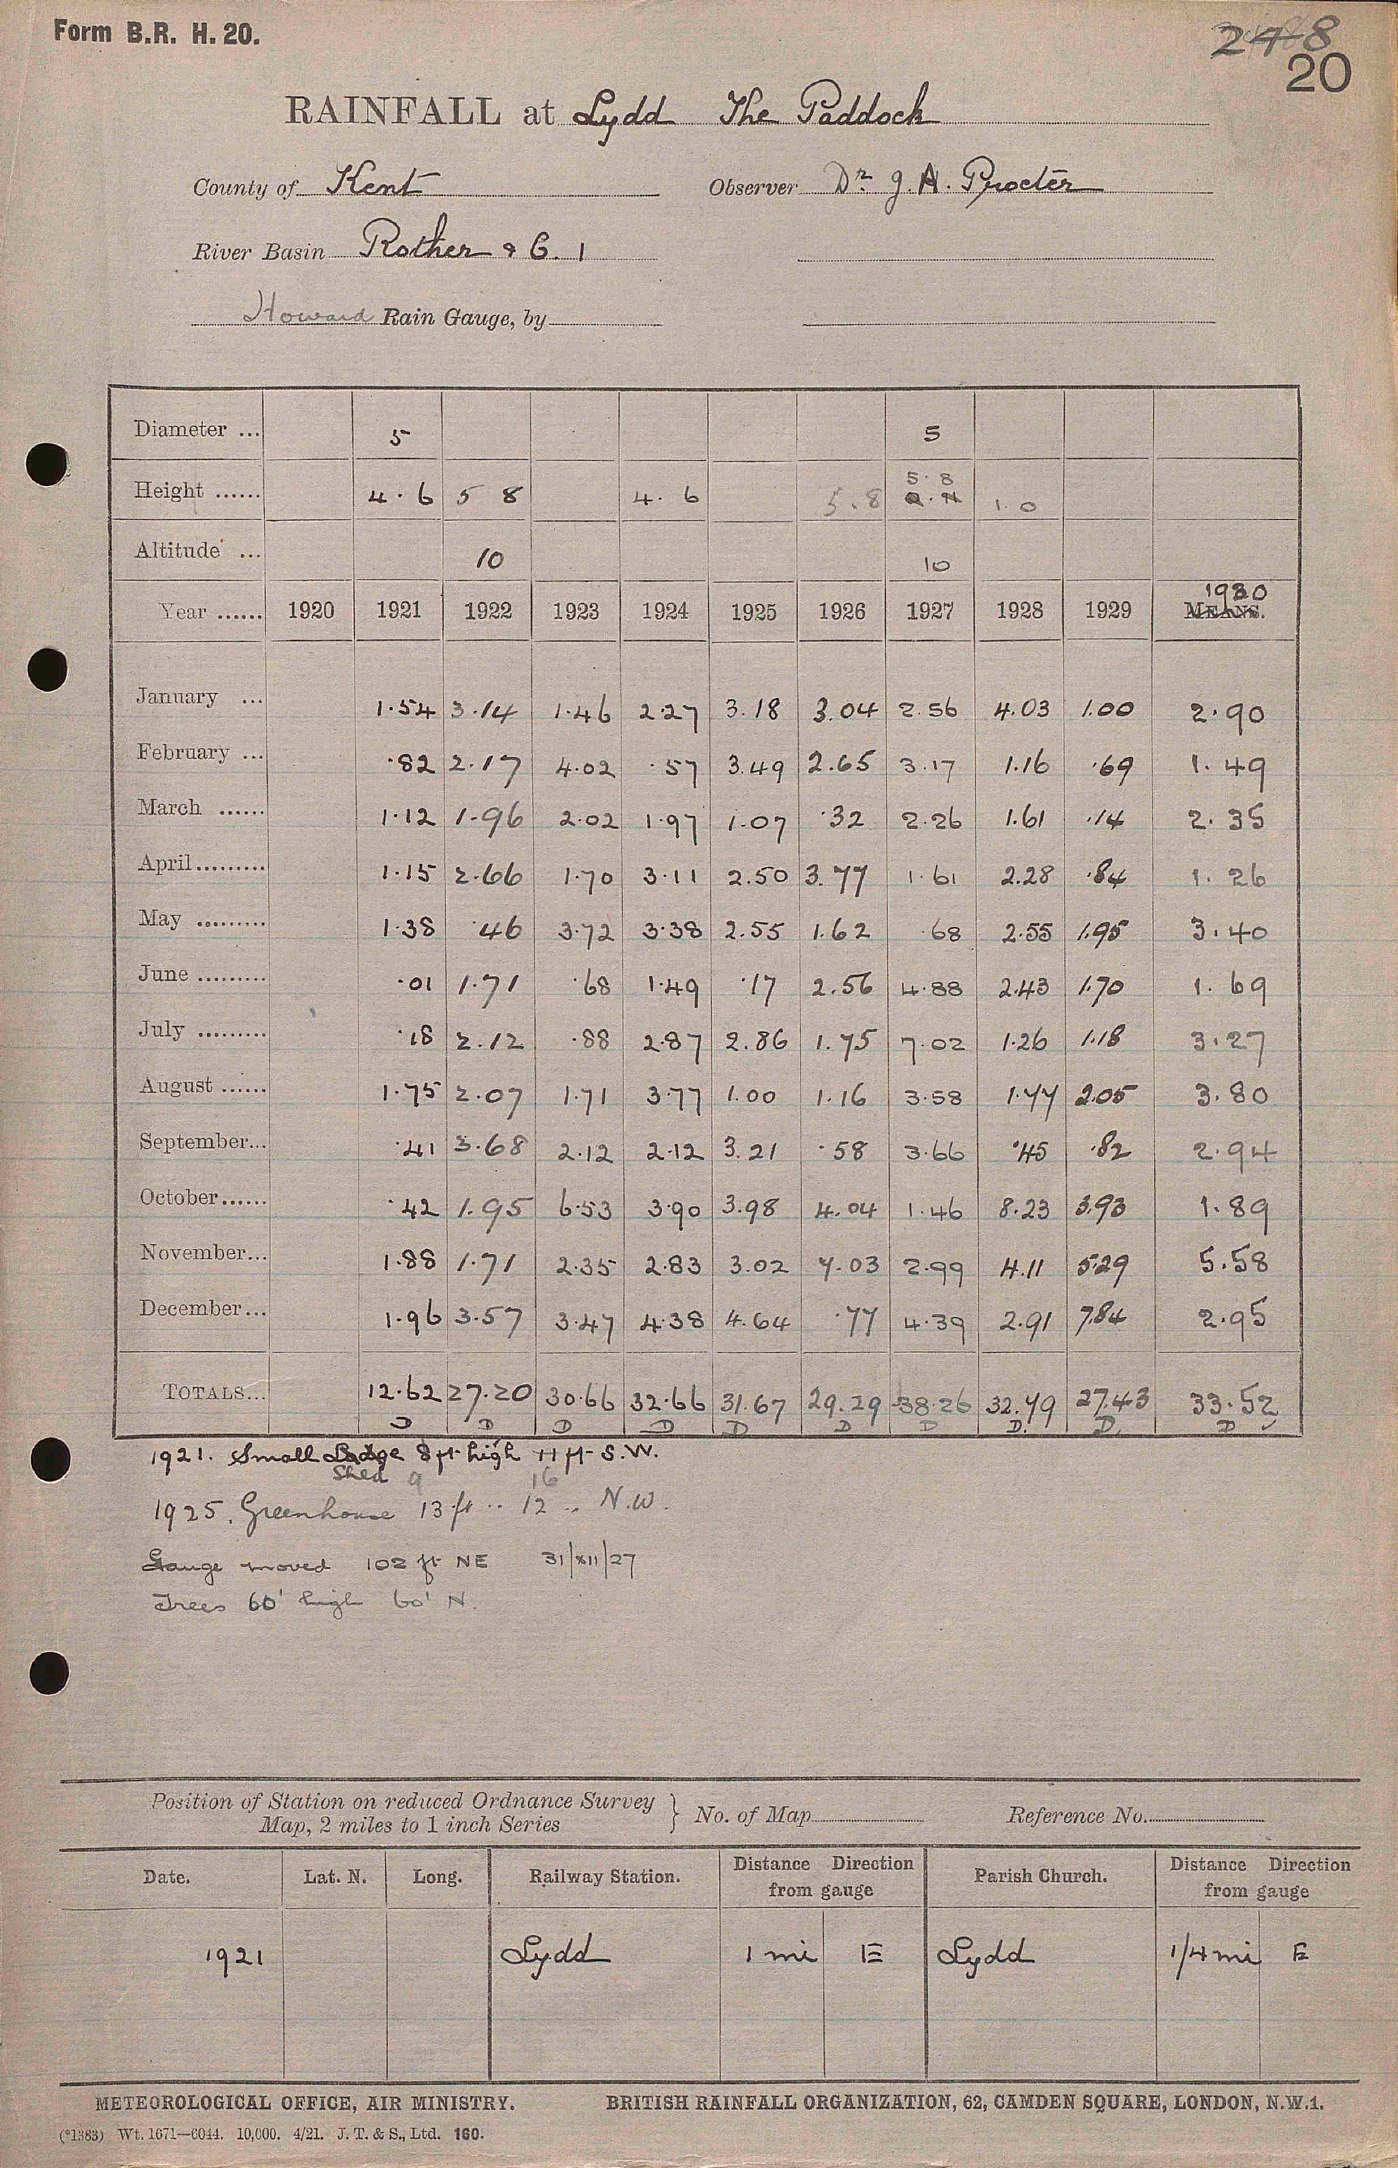 Form B.R. H. 20.
248
20
RAINFALL at Lydd The Paddock
County of Kent Observer Dr. J. A. Procter
River Basin Rother & C. 1
Howard Rain Gauge, by
Diameter ... 5 5
Height ...... 4.6 5 8 4.6 5.8 5.8 1.0
Altitude ... 10 10
1930
Year ...... 1920 1921 1922 1923 1924 1925 1926 1927 1928 1929 MEANS.
January ... 1.54 3.14 1.46 2.27 3.18 3.04 2.56 4.03 1.00 2.90
February ... .82 2.17 4.02 .57 3.49 2.65 3.17 1.16 .69 1.49
March ...... 1.12 1.96 2.02 1.97 1.07 .32 2.26 1.61 .14 2.35
April ......... 1.15 2.66 1.70 3.11 2.50 3.77 1.61 2.28 .84 1.26
May ......... 1.38 .46 3.72 3.38 2.55 1.62 .68 2.55 1.95 3.40
June ......... .01 1.71 .68 1.49 .17 2.56 4.88 2.43 1.70 1.69
July ......... .18 2.12 .88 2.87 2.86 1.75 7.02 1.26 1.18 3.27
August ...... 1.75 2.07 1.71 3.77 1.00 1.16 3.58 1.77 2.05 3.80
September... .41 3.68 2.12 2.12 3.21 .58 3.66 .45 .82 2.94
October...... .42 1.95 6.53 3.90 3.98 4.04 1.46 8.23 3.93 1.89
November... 1.88 1.71 2.35 2.83 3.02 7.03 2.99 4.11 5.29 5.58
December... 1.96 3.57 3.47 4.38 4.64 .77 4.39 2.91 7.84 2.95
TOTALS... 12.62 27.20 30.66 32.66 31.67 29.29 38.26 32.79 27.43 33.52
D D D D D D D D. D. D
1921. Small Lodge 8 ft high 11 ft S.W.
Shed 9 16
1925. Greenhouse 13 ft .. 12 .. N.W.
Gauge moved 102 ft NE 31/XII/27
Trees 60' high 60' N.
Position of Station on reduced Ordnance Survey
Map, 2 miles to 1 inch Series } No. of Map Reference No.
Date. Lat. N. Long. Railway Station. Distance Direction from gauge Parish Church. Distance Direction from gauge
1921 Lydd 1 mi E Lydd 1/4 mi E
METEOROLOGICAL OFFICE, AIR MINISTRY. BRITISH RAINFALL ORGANIZATION, 62, CAMDEN SQUARE, LONDON, N.W.1.
(*1383) Wt. 1671—6044. 10,000. 4/21. J. T. & S., Ltd. 160.